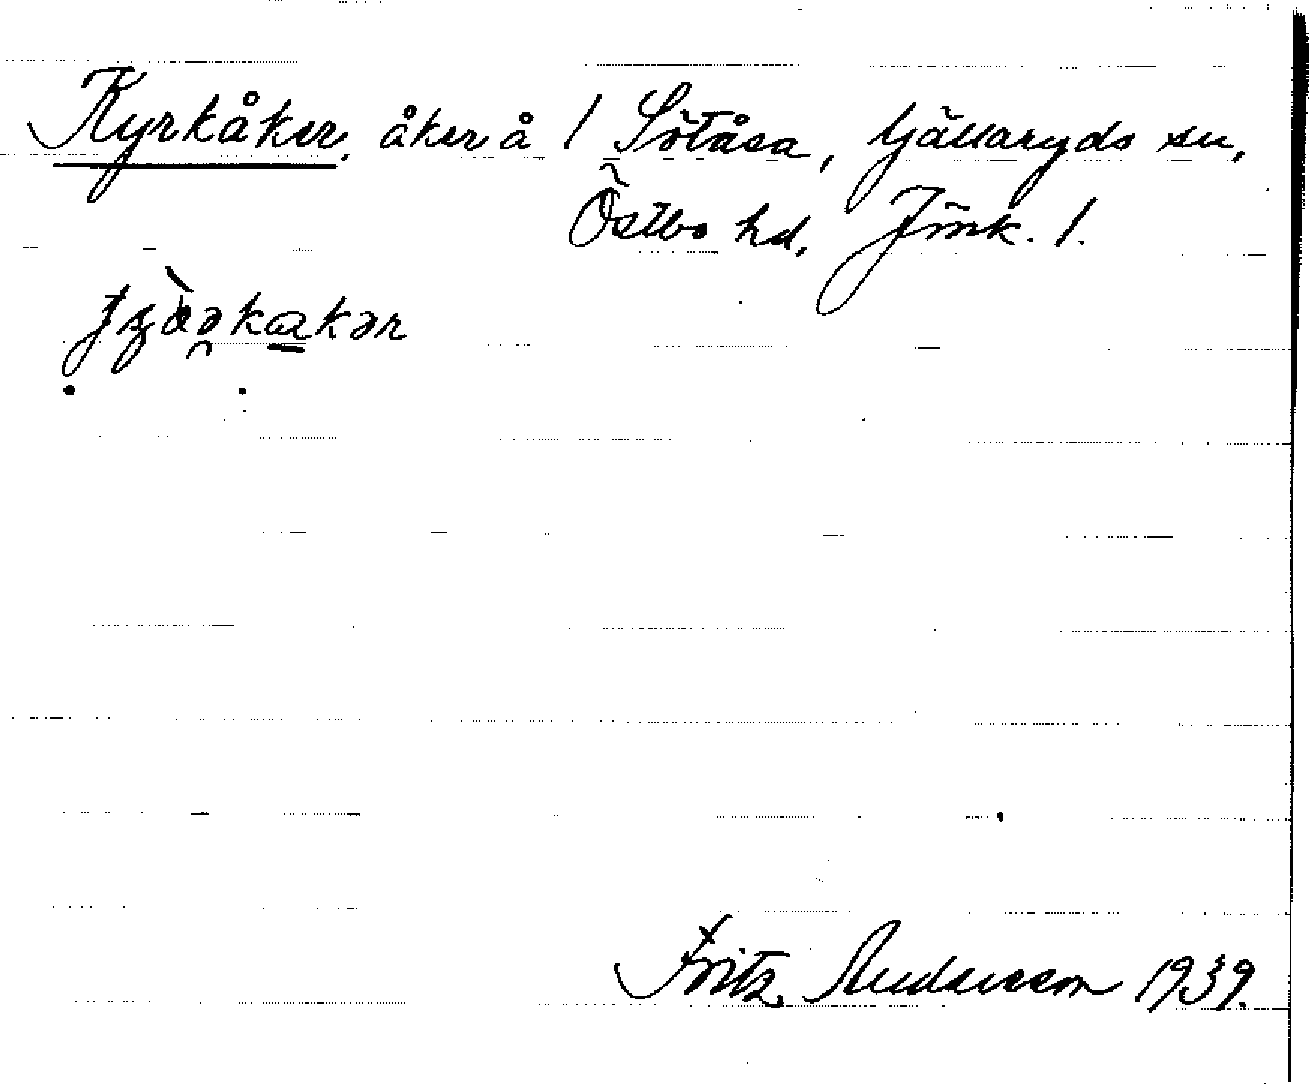 Kyrkåker, åker å 1 Sötåsa, Gällaryds sn,
Östbo hd, Jönk. l.
Fritz Andersson 1939.